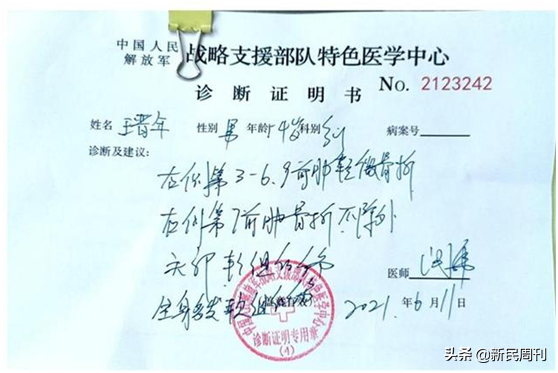 中国人民
解放军 战略支援部队特色医学中心
诊断证明书 NO. 2123242
姓名 王晋年 性别 男 年龄 4岁 科别 病案号
诊断及建议:
左侧第3-6.9前肋轻微骨折
侧第7前肋骨折不除外
头部软组织
医师
全身 软组织
2021年6月11日
诊断证明专用章
(1)
头条 @新民周刊